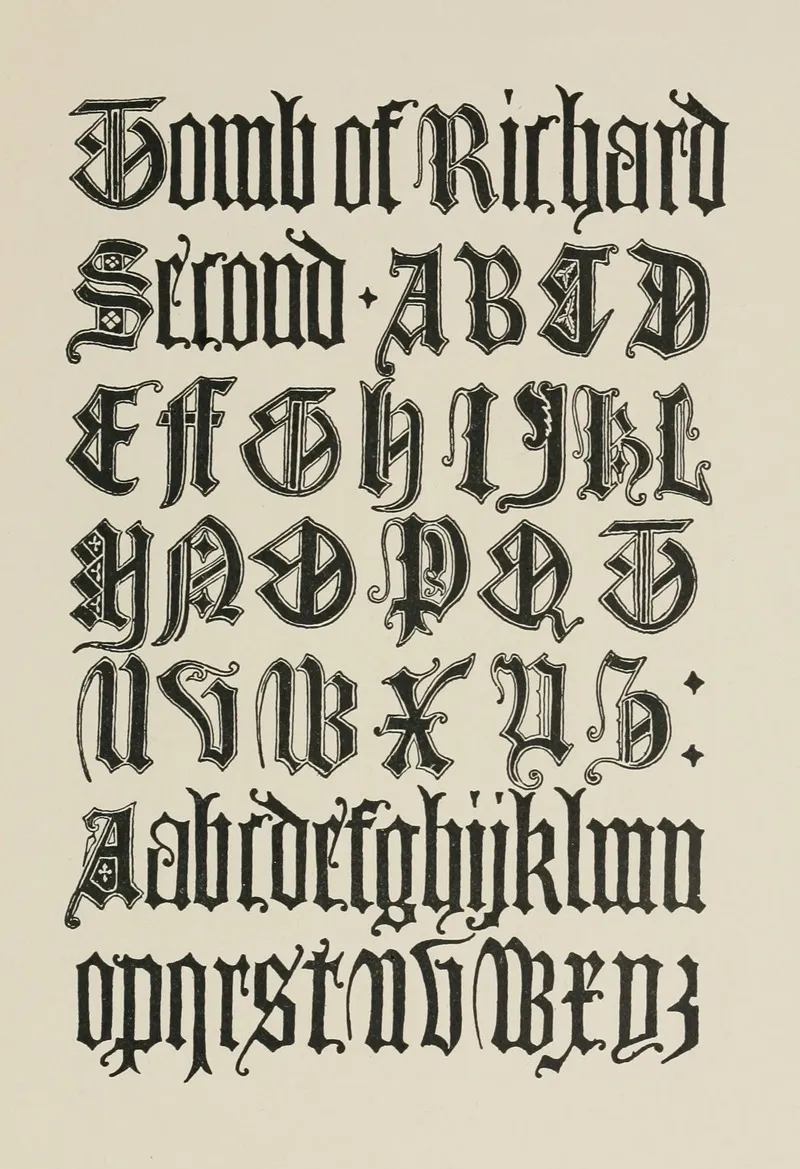 Tomb of Richard
Second · A B C D
E F G H I J K L
M N O P Q T
U V W X Y Z :
A a b c d e f g h i j k l m n
o p q r s t u v w x y z